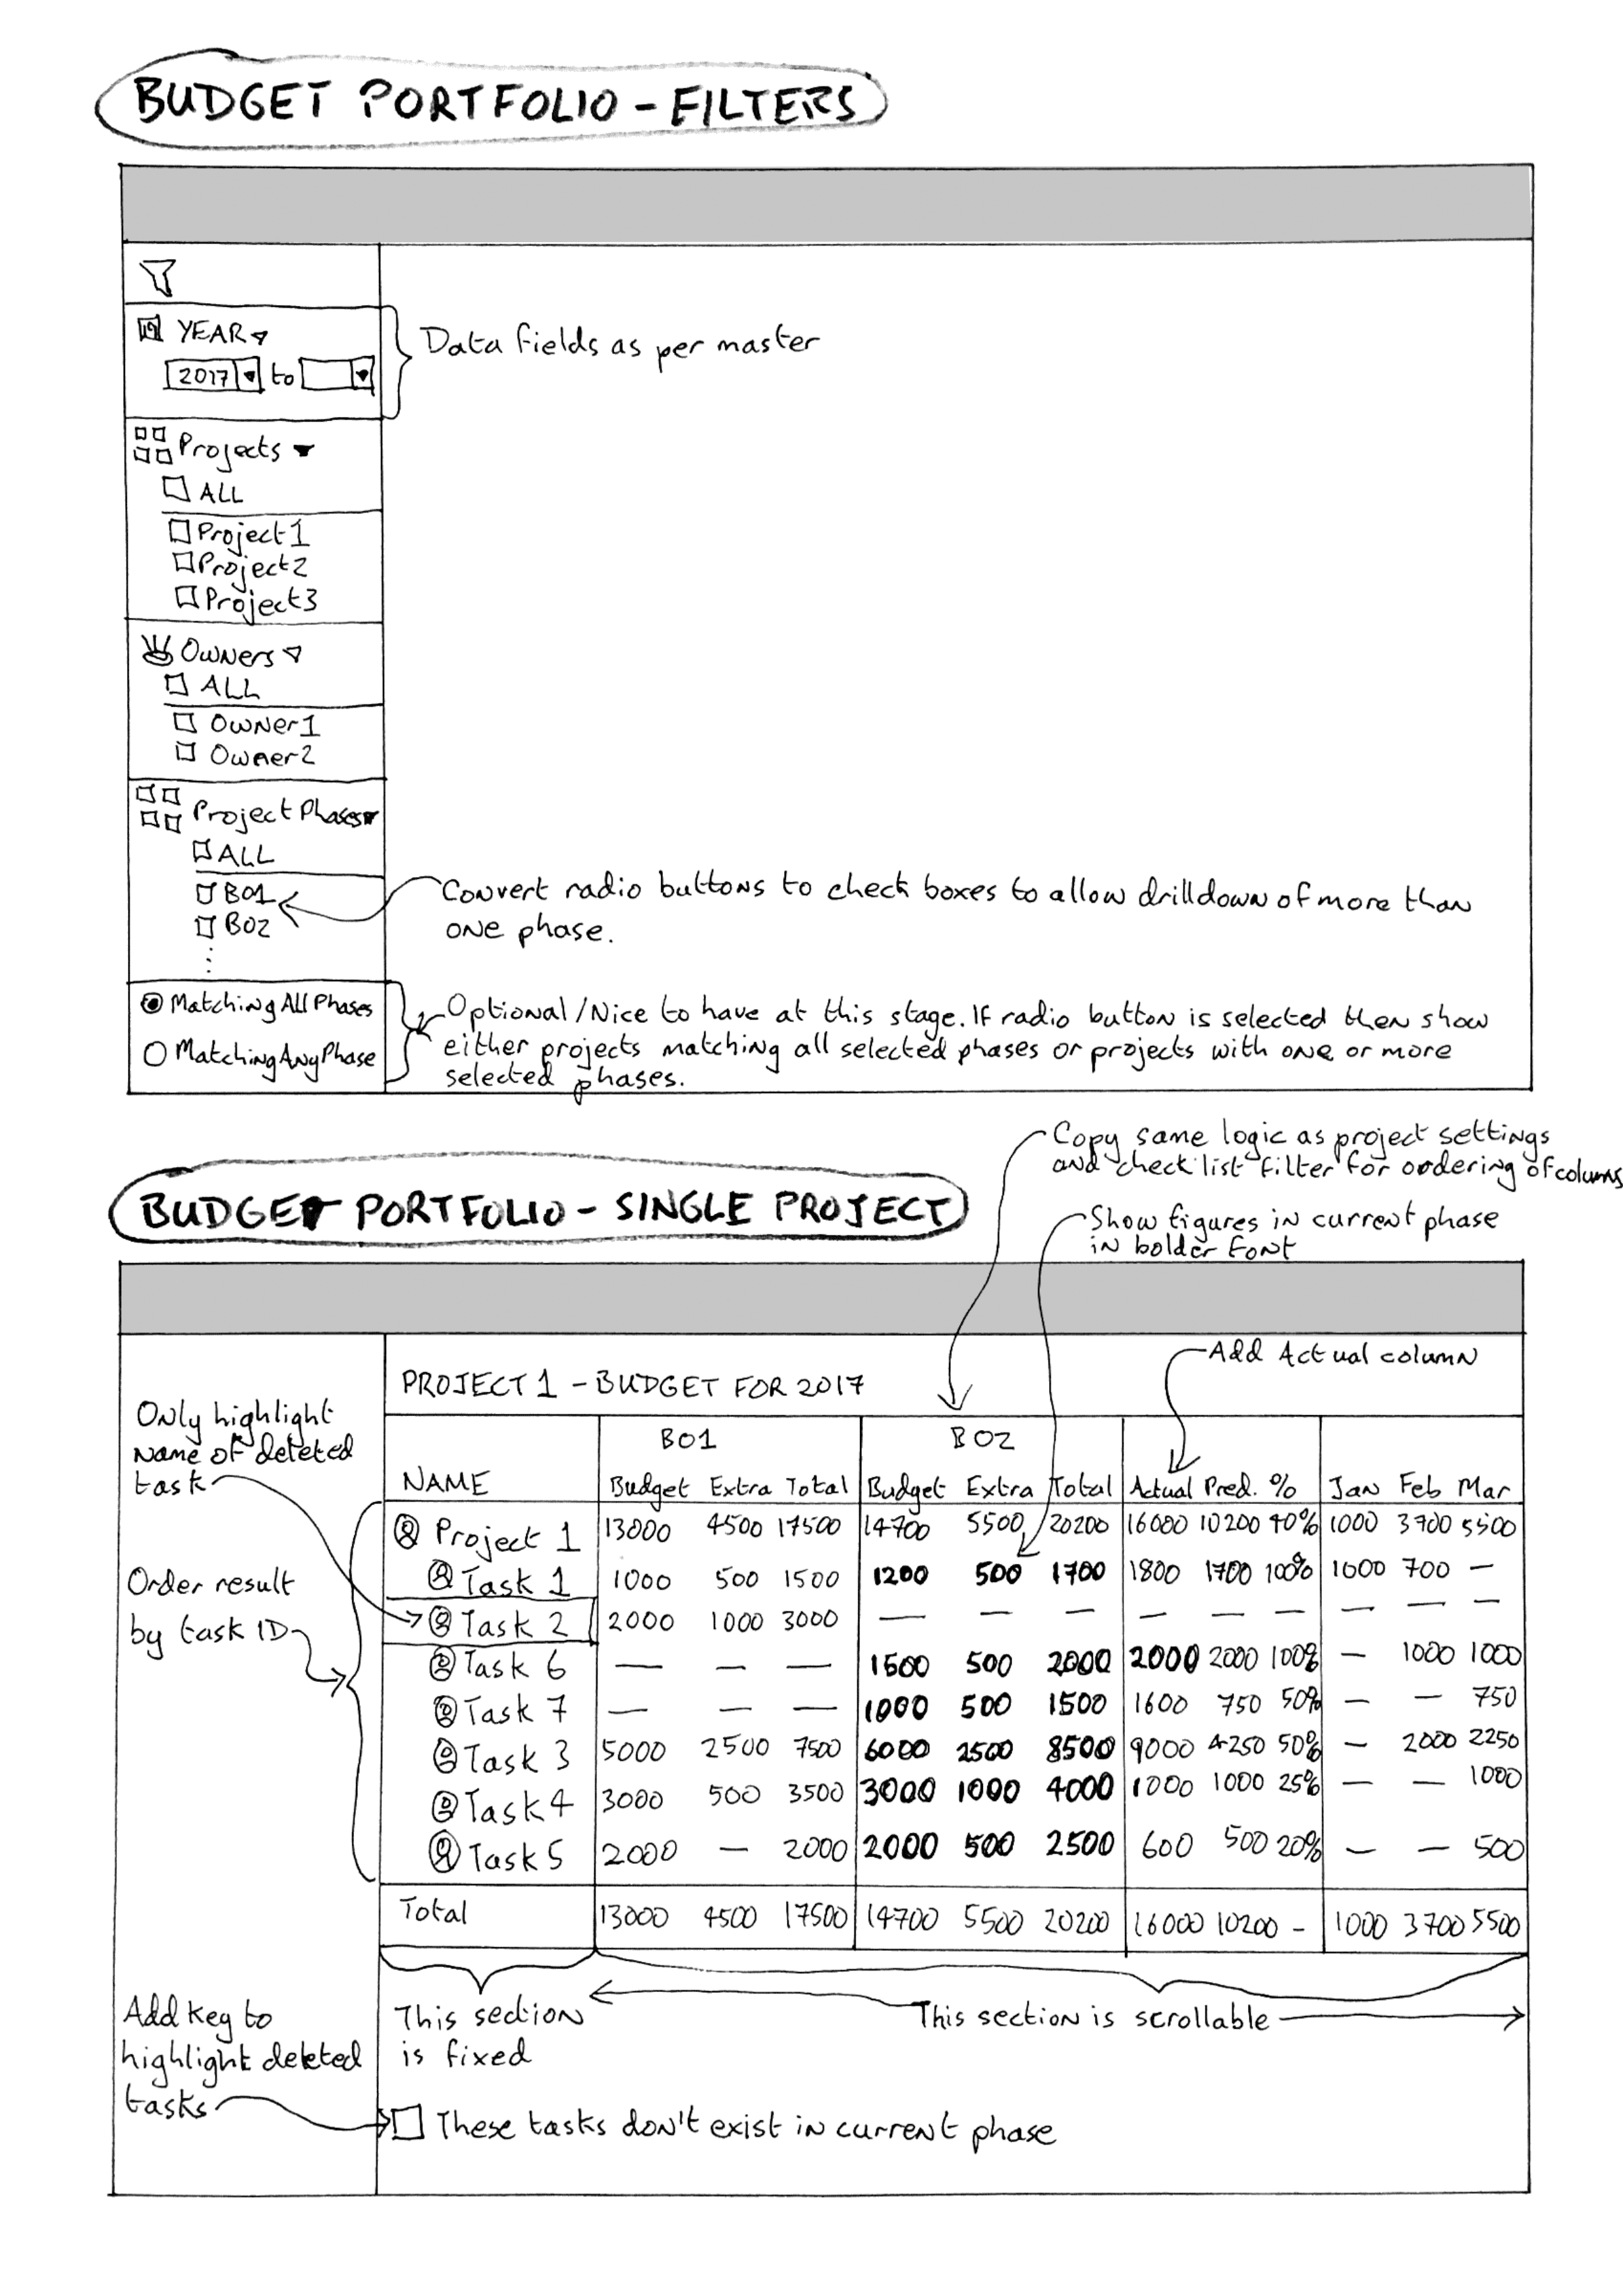 BUDGET PORTFOLIO - FILTERS
YEAR
2017 to
Data fields as per master
Projects
ALL
Project 1
Project 2
Project 3
Owners
ALL
Owner 1
Owner 2
Project Phases
ALL
BO1
BO2
Convert radio buttons to check boxes to allow drilldown of more than
one phase.
Matching All Phases
Matching Any Phase
Optional / Nice to have at this stage. If radio button is selected then show
either projects matching all selected phases or projects with one or more
selected phases.
Copy same logic as project settings
and check list filter for ordering of columns
BUDGET PORTFOLIO - SINGLE PROJECT
Show figures in current phase
in bolder font
Add Actual column
PROJECT 1 - BUDGET FOR 2017
Only highlight
name of deleted
task
BO1 BO2
NAME Budget Extra Total Budget Extra Total Actual Pred. % Jan Feb Mar
Project 1 13000 4500 17500 14700 5500 20200 16000 10200 40% 1000 3700 5500
Task 1 1000 500 1500 1200 500 1700 1800 1700 100% 1000 700 —
Task 2 2000 1000 3000 — — — — — — — — —
Task 6 — — — 1500 500 2000 2000 2000 100% — 1000 1000
Task 7 — — — 1000 500 1500 1600 750 50% — — 750
Task 3 5000 2500 7500 6000 2500 8500 9000 4250 50% — 2000 2250
Task 4 3000 500 3500 3000 1000 4000 1000 1000 25% — — 1000
Task 5 2000 — 2000 2000 500 2500 600 500 20% — — 500
Total 13000 4500 17500 14700 5500 20200 16000 10200 - 1000 3700 5500
Order result
by task ID
This section
is fixed
This section is scrollable
Add key to
highlight deleted
tasks
These tasks don't exist in current phase